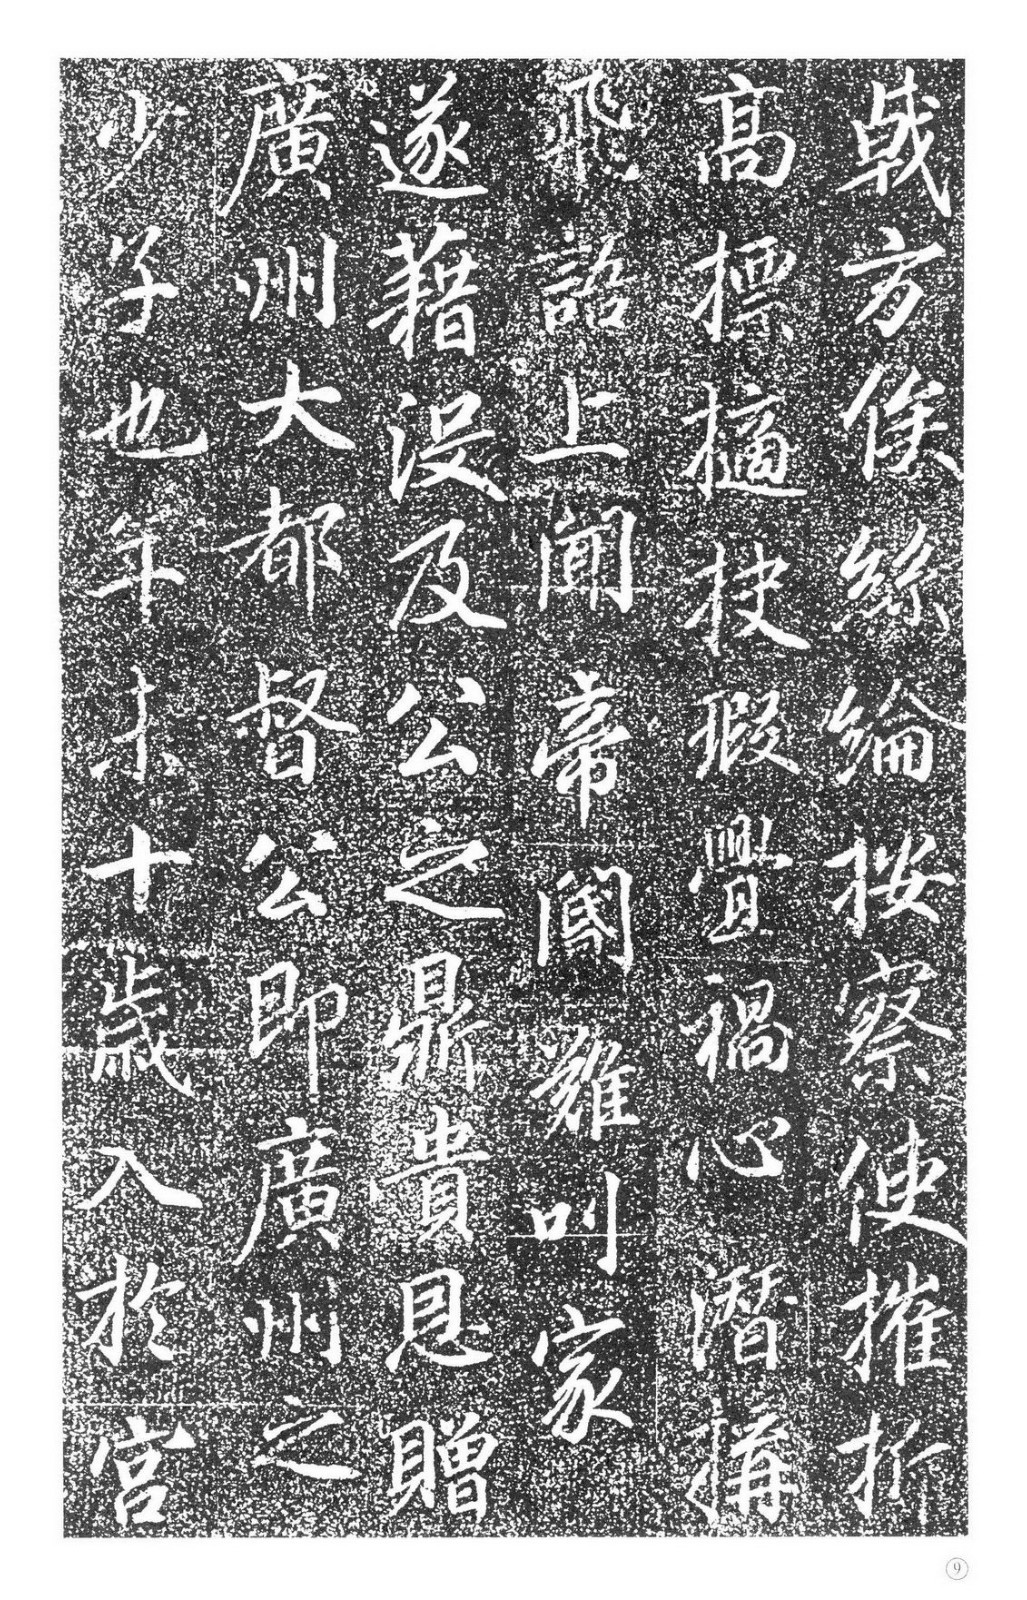 戟方俟絲綸按察使摧折
高標擿抉瑕舋禍心潛構
飛語上聞帝閽難叫家
遂藉沒及公之鼎貴恩贈
廣州大都督公即廣州之
少子也年未十歲入於宮
9